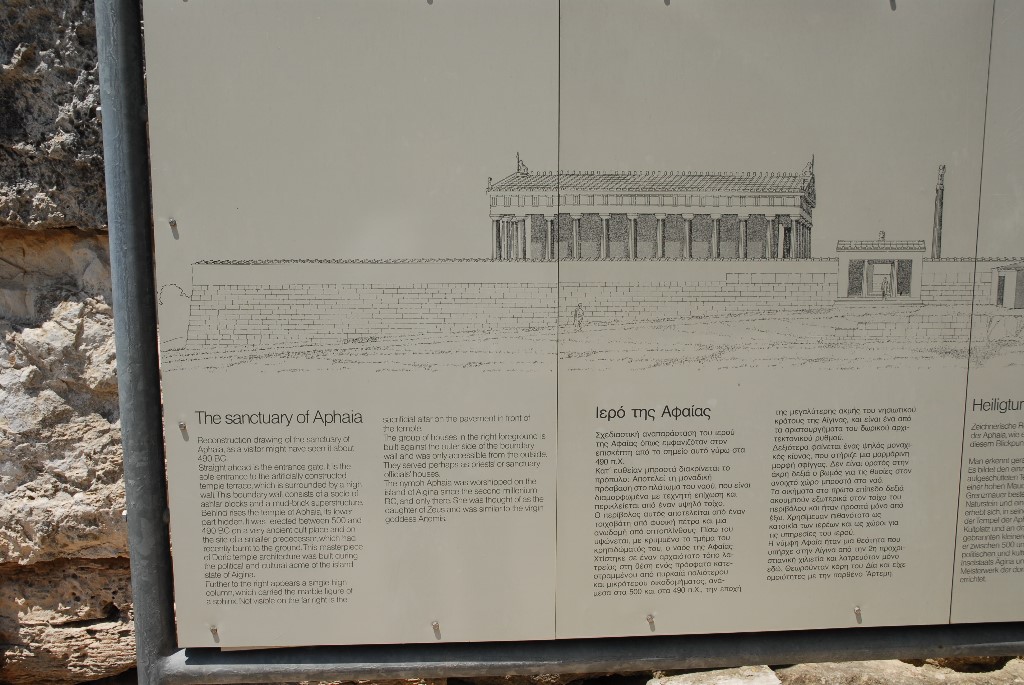 The sanctuary of Aphaia
Reconstruction drawing of the sanctuary of
Aphaia, as a visitor might have seen it about
490 BC.
Straight ahead is the entrance gate. It is the
sole entrance to the artificially constructed
temple terrace, which is surrounded by a high
wall. This boundary wall consists of a socle of
ashlar blocks and a mud-brick superstructure.
Behind rises the temple of Aphaia, its lower
part hidden. It was erected between 500 and
490 BC on a very ancient cult place and on
the site of a smaller predecessor, which had
recently burnt to the ground. This masterpiece
of Doric temple architecture was built during
the political and cultural acme of the island
state of Aigina.
Further to the right appears a single high
column, which carried the marble figure of
a sphinx. Not visible on the far right is the
sacrificial altar on the pavement in front of
the temple.
The group of houses in the right foreground is
built against the outer side of the boundary
wall and was only accessible from the outside.
They served perhaps as priests' or sanctuary
officials' houses.
The nymph Aphaia was worshipped on the
island of Aigina since the second millenium
BC, and only there. She was thought of as the
daughter of Zeus and was similar to the virgin
goddess Artemis.
Ιερό της Αφαίας
Σχεδιαστική αναπαράσταση του ιερού
της Αφαίας όπως εμφανιζόταν στον
επισκέπτη από το σημείο αυτό γύρω στα
490 π.Χ.
Κατ' ευθείαν μπροστά διακρίνεται το
πρόπυλο. Αποτελεί τη μοναδική
πρόσβαση στο πλάτωμα του ναού, που είναι
διαμορφωμένο με τεχνητή επίχωση και
περικλείεται από έναν υψηλό τοίχο.
Ο περίβολος αυτός αποτελείται από έναν
τοιχοβάτη από φυσική πέτρα και μια
ανοδομή από ωμοπλίνθους. Πίσω του
υψώνεται, με κρυμμένο το τμήμα του
κρηπιδώματός του, ο ναός της Αφαίας.
Χτίστηκε σε έναν αρχαιότατο τόπο λα-
τρείας στη θέση ενός πρόσφατα κατε-
στραμμένου από πυρκαιά παλιότερου
και μικρότερου οικοδομήματος, ανά-
μεσα στα 500 και στα 490 π.Χ., την εποχή
της μεγαλύτερης ακμής του νησιωτικού
κράτους της Αίγινας, και είναι ένα από
τα αριστουργήματα του δωρικού αρχι-
τεκτονικού ρυθμού.
Δεξιότερα φαίνεται ένας ψηλός μοναχι-
κός κίονας, που στήριζε μια μαρμάρινη
μορφή σφίγγας. Δεν είναι ορατός στην
άκρη δεξιά ο βωμός για τις θυσίες στον
ανοιχτό χώρο μπροστά στο ναό.
Τα οικήματα στο πρώτο επίπεδο δεξιά
ακουμπούν εξωτερικά στον τοίχο του
περιβόλου και ήταν προσιτά μόνο από
έξω. Χρησίμευαν πιθανότατα ως
κατοικία των ιερέων και ως χώροι για
τις υπηρεσίες του ιερού.
Η νύμφη Αφαία ήταν μια θεότητα που
υπήρχε στην Αίγινα από την 2η προχρι-
στιανική χιλιετία και λατρευόταν μόνο
εδώ. Θεωρούνταν κόρη του Δία και είχε
ομοιότητες με την παρθένο Άρτεμη.
Heiligtum
Zeichnerische R
der Aphaia, wie e
diesem Blickpunkt
Man erkennt gera
Es bildet den einz
aufgeschütteten T
einer hohen Mauer
Grenzmauer besteht
Naturstein und einem
erhebt sich, in seinem
der Tempel der Aphaia
Kultplatz und an der
gebrannten kleinen
er zwischen 500 und
politischen und kultur
Inselstaats Aigina und
Meisterwerk der dor
errichtet.